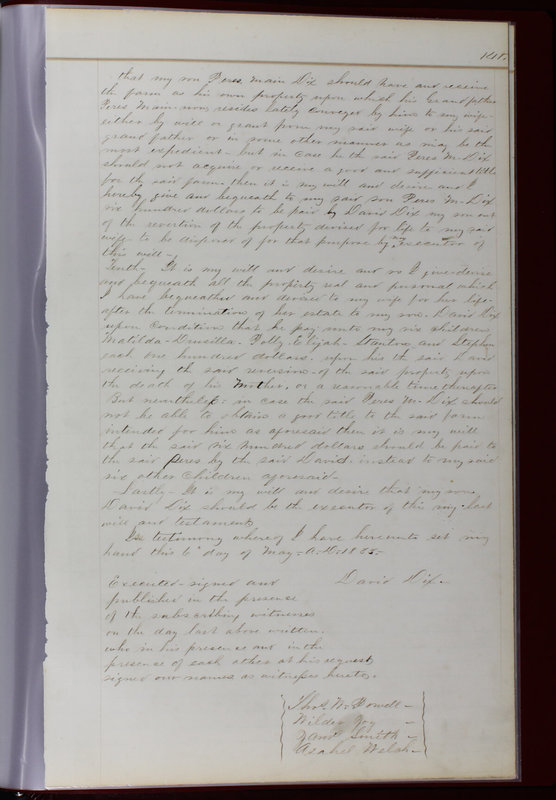 that my son Peres Main Dix should have and receive
the farm as his own property upon which his Grandfather
Peres Main now resides lately conveyed by him to my wife
either by will or grant from my said wife or his said
grand father or in some other manner as may be the
most expedient but in case he the said Peres M. Dix
should not acquire or receive a good and sufficient title
for the said farm then it is my will and desire and I
hereby give and bequeath to my said son Peres M. Dix
six hundred dollars to be paid by David Dix my son out
of the revertion of the property devised for life to my said
wife to be disposed of for that purpose by my Executor of
this will -
Tenth - It is my will and desire and so I give devise
and bequeath all the property real and personal which
I have bequeathed and devised to my wife for her life
after the termination of her estate to my son David Dix
upon condition that he pay unto my six children
Matilda - Drusilla - Polly Elijah - Stanton and Stephen
each one hundred dollars - upon his the said David
receiving the said reversion of the said property upon
the death of his Mother, or a reasonable time thereafter
But nevertheless - in case the said Peres M. Dix should
not be able to obtain a good title to the said farm
intended for him as aforesaid then it is my will
that the said six hundred dollars should be paid to
the said Peres by the said David instead to my said
six other children aforesaid -
Lastly - It is my will and desire that my son
David Dix should be the executor of this my last
will and testament
In testimony whereof I have hereunto set my
hand this 6" day of May - A.D.
Executed signed and David Dix -
published in the presence
of the subscribing witnesses
on the day last above written.
who in his presence and in the
presence of each other at his request
signed our names as witnesses hereto.
Thos. W. Powell -
Wilder Joy -
Smith -
Asahel Welch -